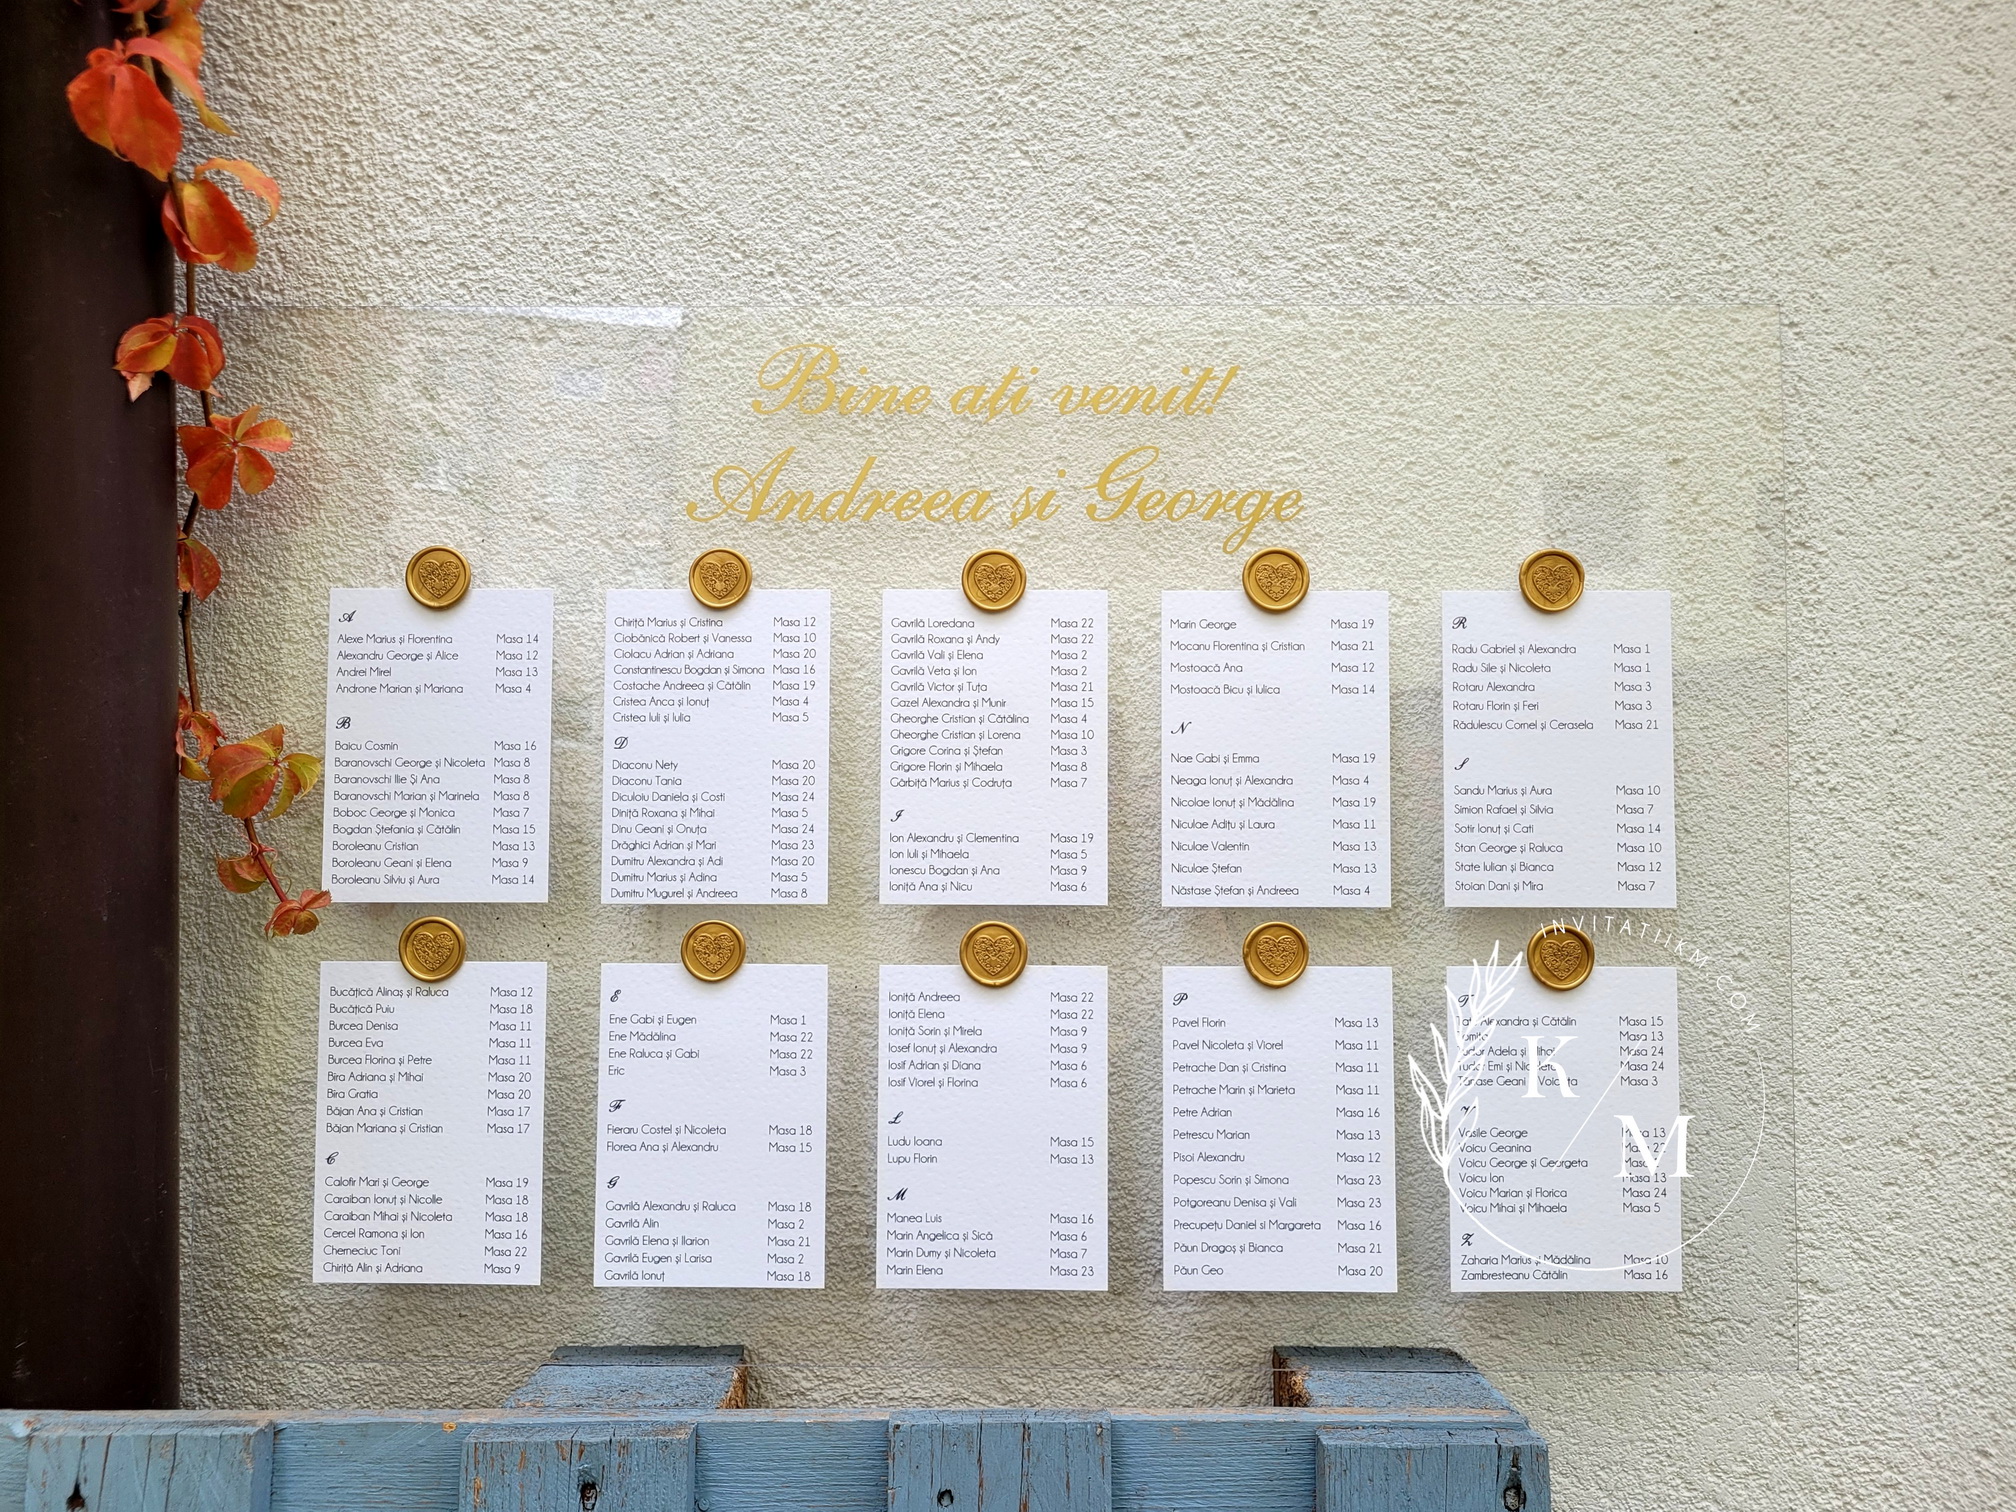 Bine ați venit!
Andreea și George
A
Alexe Marius și Florentina Masa 14
Alexandru George și Alice Masa 12
Andrei Mirel Masa 13
Androne Marian și Mariana Masa 4
B
Baicu Cosmin Masa 16
Baranovschi George și Nicoleta Masa 8
Baranovschi Ilie Și Ana Masa 8
Baranovschi Marian și Marinela Masa 8
Boboc George și Monica Masa 7
Bogdan Ștefania și Cătălin Masa 15
Boroleanu Cristian Masa 13
Boroleanu Geani și Elena Masa 9
Boroleanu Silviu și Aura Masa 14
Bucățică Alinaș și Raluca Masa 12
Bucățică Puiu Masa 18
Burcea Denisa Masa 11
Burcea Eva Masa 11
Burcea Florina și Petre Masa 11
Bira Adriana și Mihai Masa 20
Bira Gratia Masa 20
Băjan Ana și Cristian Masa 17
Băjan Mariana și Cristian Masa 17
C
Calofir Mari și George Masa 19
Caraiban Ionuț și Nicolle Masa 18
Caraiban Mihai și Nicoleta Masa 18
Cercel Ramona și Ion Masa 16
Cherneciuc Toni Masa 22
Chiriță Alin și Adriana Masa 9
Chiriță Marius și Cristina Masa 12
Ciobănică Robert și Vanessa Masa 10
Ciolacu Adrian și Adriana Masa 20
Constantinescu Bogdan și Simona Masa 16
Costache Andreea și Cătălin Masa 19
Cristea Anca și Ionuț Masa 4
Cristea Iuli și Iulia Masa 5
D
Diaconu Nety Masa 20
Diaconu Tania Masa 20
Diculoiu Daniela și Costi Masa 24
Diniță Roxana și Mihai Masa 5
Dinu Geani și Onuța Masa 24
Drăghici Adrian și Mari Masa 23
Dumitru Alexandra și Adi Masa 20
Dumitru Marius și Adina Masa 5
Dumitru Mugurel și Andreea Masa 8
E
Ene Gabi și Eugen Masa 1
Ene Mădălina Masa 22
Ene Raluca și Gabi Masa 22
Eric Masa 3
F
Fieraru Costel și Nicoleta Masa 18
Florea Ana și Alexandru Masa 15
G
Gavrilă Alexandru și Raluca Masa 18
Gavrilă Alin Masa 2
Gavrilă Elena și Ilarion Masa 21
Gavrilă Eugen și Larisa Masa 2
Gavrilă Ionuț Masa 18
Gavrilă Loredana Masa 22
Gavrilă Roxana și Andy Masa 22
Gavrilă Vali și Elena Masa 2
Gavrilă Veta și Ion Masa 2
Gavrilă Victor și Tuța Masa 21
Gazel Alexandra și Munir Masa 15
Gheorghe Cristian și Cătălina Masa 4
Gheorghe Cristian și Lorena Masa 10
Grigore Corina și Ștefan Masa 3
Grigore Florin și Mihaela Masa 8
Gârbiță Marius și Codruța Masa 7
I
Ion Alexandru și Clementina Masa 19
Ion Iuli și Mihaela Masa 5
Ionescu Bogdan și Ana Masa 9
Ioniță Ana și Nicu Masa 6
Ioniță Andreea Masa 22
Ioniță Elena Masa 22
Ioniță Sorin și Mirela Masa 9
Iosef Ionuț și Alexandra Masa 9
Iosif Adrian și Diana Masa 6
Iosif Viorel și Florina Masa 6
L
Ludu Ioana Masa 15
Lupu Florin Masa 13
M
Manea Luis Masa 16
Marin Angelica și Sică Masa 6
Marin Dumy și Nicoleta Masa 7
Marin Elena Masa 23
Marin George Masa 19
Mocanu Florentina și Cristian Masa 21
Mostoacă Ana Masa 12
Mostoacă Bicu și Iulica Masa 14
N
Nae Gabi și Emma Masa 19
Neaga Ionuț și Alexandra Masa 4
Nicolae Ionuț și Mădălina Masa 19
Niculae Adițu și Laura Masa 11
Niculae Valentin Masa 13
Niculae Ștefan Masa 13
Năstase Ștefan și Andreea Masa 4
P
Pavel Florin Masa 13
Pavel Nicoleta și Viorel Masa 11
Petrache Dan și Cristina Masa 11
Petrache Marin și Marieta Masa 11
Petre Adrian Masa 16
Petrescu Marian Masa 13
Pisoi Alexandru Masa 12
Popescu Sorin și Simona Masa 23
Potgoreanu Denisa și Vali Masa 23
Precupețu Daniel si Margareta Masa 16
Păun Dragoș și Bianca Masa 21
Păun Geo Masa 20
R
Radu Gabriel și Alexandra Masa 1
Radu Sile și Nicoleta Masa 1
Rotaru Alexandra Masa 3
Rotaru Florin și Feri Masa 3
Rădulescu Cornel și Cerasela Masa 21
S
Sandu Marius și Aura Masa 10
Simion Rafael și Silvia Masa 7
Sotir Ionuț și Cati Masa 14
Stan George și Raluca Masa 10
State Iulian și Bianca Masa 12
Stoian Dani și Mira Masa 7
T
Alexandra și Cătălin Masa 15
Masa 13
Tudor Adela și Mihai Masa 24
Tudor Emi și Nicoleta Masa 24
Tănase Geani Masa 3
V
Vasile George Masa 13
Voicu Geanina Masa
Voicu George și Georgeta Masa
Voicu Ion Masa 13
Voicu Marian și Florica Masa 24
Voicu Mihai și Mihaela Masa 5
Z
Zaharia Marius și Mădălina Masa 10
Zambresteanu Cătălin Masa 16
INVITATIIKM.COM
K
M